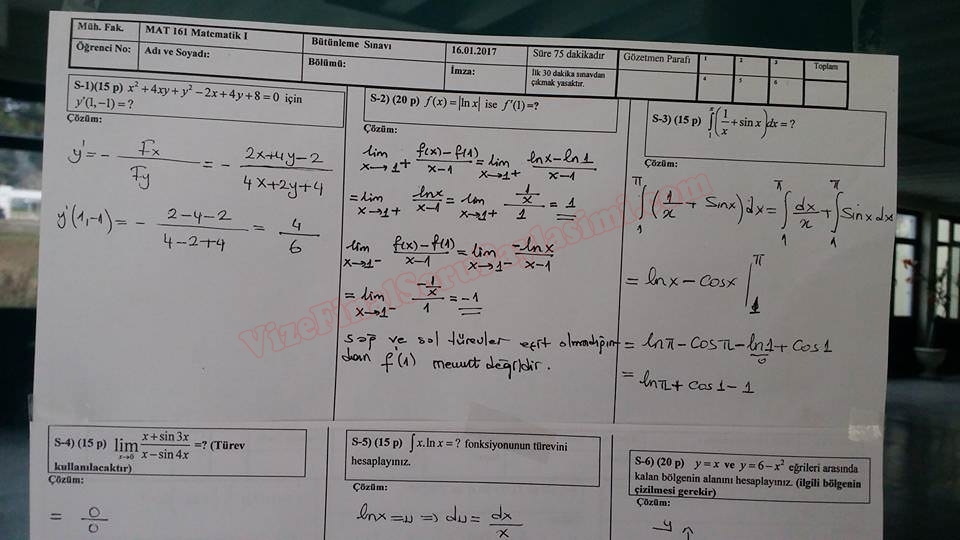 Müh. Fak. MAT 161 Matematik I Bütünleme Sınavı 16.01.2017 Süre 75 dakikadır Gözetmen Parafı 1 2 3 Toplam
Öğrenci No: Adı ve Soyadı: Bölümü: İmza: İlk 30 dakika sınavdan çıkmak yasaktır. 4 5 6
S-1)(15 p) x² + 4xy + y² − 2x + 4y + 8 = 0 için
y'(1,−1) = ?
Çözüm:
y' = − Fx/Fy = − (2x+4y−2)/(4x+2y+4)
y'(1,−1) = − (2−4−2)/(4−2+4) = 4/6
S-2) (20 p) f(x) = |ln x| ise f'(1) = ?
Çözüm:
lim x→1+ (f(x)−f(1))/(x−1) = lim x→1+ (lnx−ln1)/(x−1)
= lim x→1+ lnx/(x−1) = lim x→1+ (1/x)/1 = 1
lim x→1− (f(x)−f(1))/(x−1) = lim x→1− −lnx/(x−1)
= lim x→1− (−1/x)/1 = −1
sağ ve sol türevler eşit olmadığın
dan f'(1) mevcut değildir.
S-3) (15 p) ∫₁^π (1/x + sin x)dx = ?
Çözüm:
∫₁^π (1/x + Sinx) dx = ∫₁^π dx/x + ∫₁^π Sinx dx
= lnx − cosx |₁^π
= lnπ − cosπ − ln1 + cos1
0
= lnπ + cos1 − 1
S-4) (15 p) lim x→0 (x + sin 3x)/(x − sin 4x) = ? (Türev
kullanılacaktır)
Çözüm:
= 0/0
S-5) (15 p) ∫ x. ln x = ? fonksiyonunun türevini
hesaplayınız.
Çözüm:
lnx = u ⇒ du = dx/x
S-6) (20 p) y = x ve y = 6 − x² eğrileri arasında
kalan bölgenin alanını hesaplayınız. (ilgili bölgenin
çizilmesi gerekir)
Çözüm:
y
VizeFinalSoruKagdasimi.com